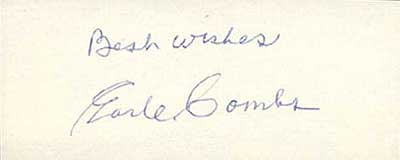 Best wishes
Earle Combs